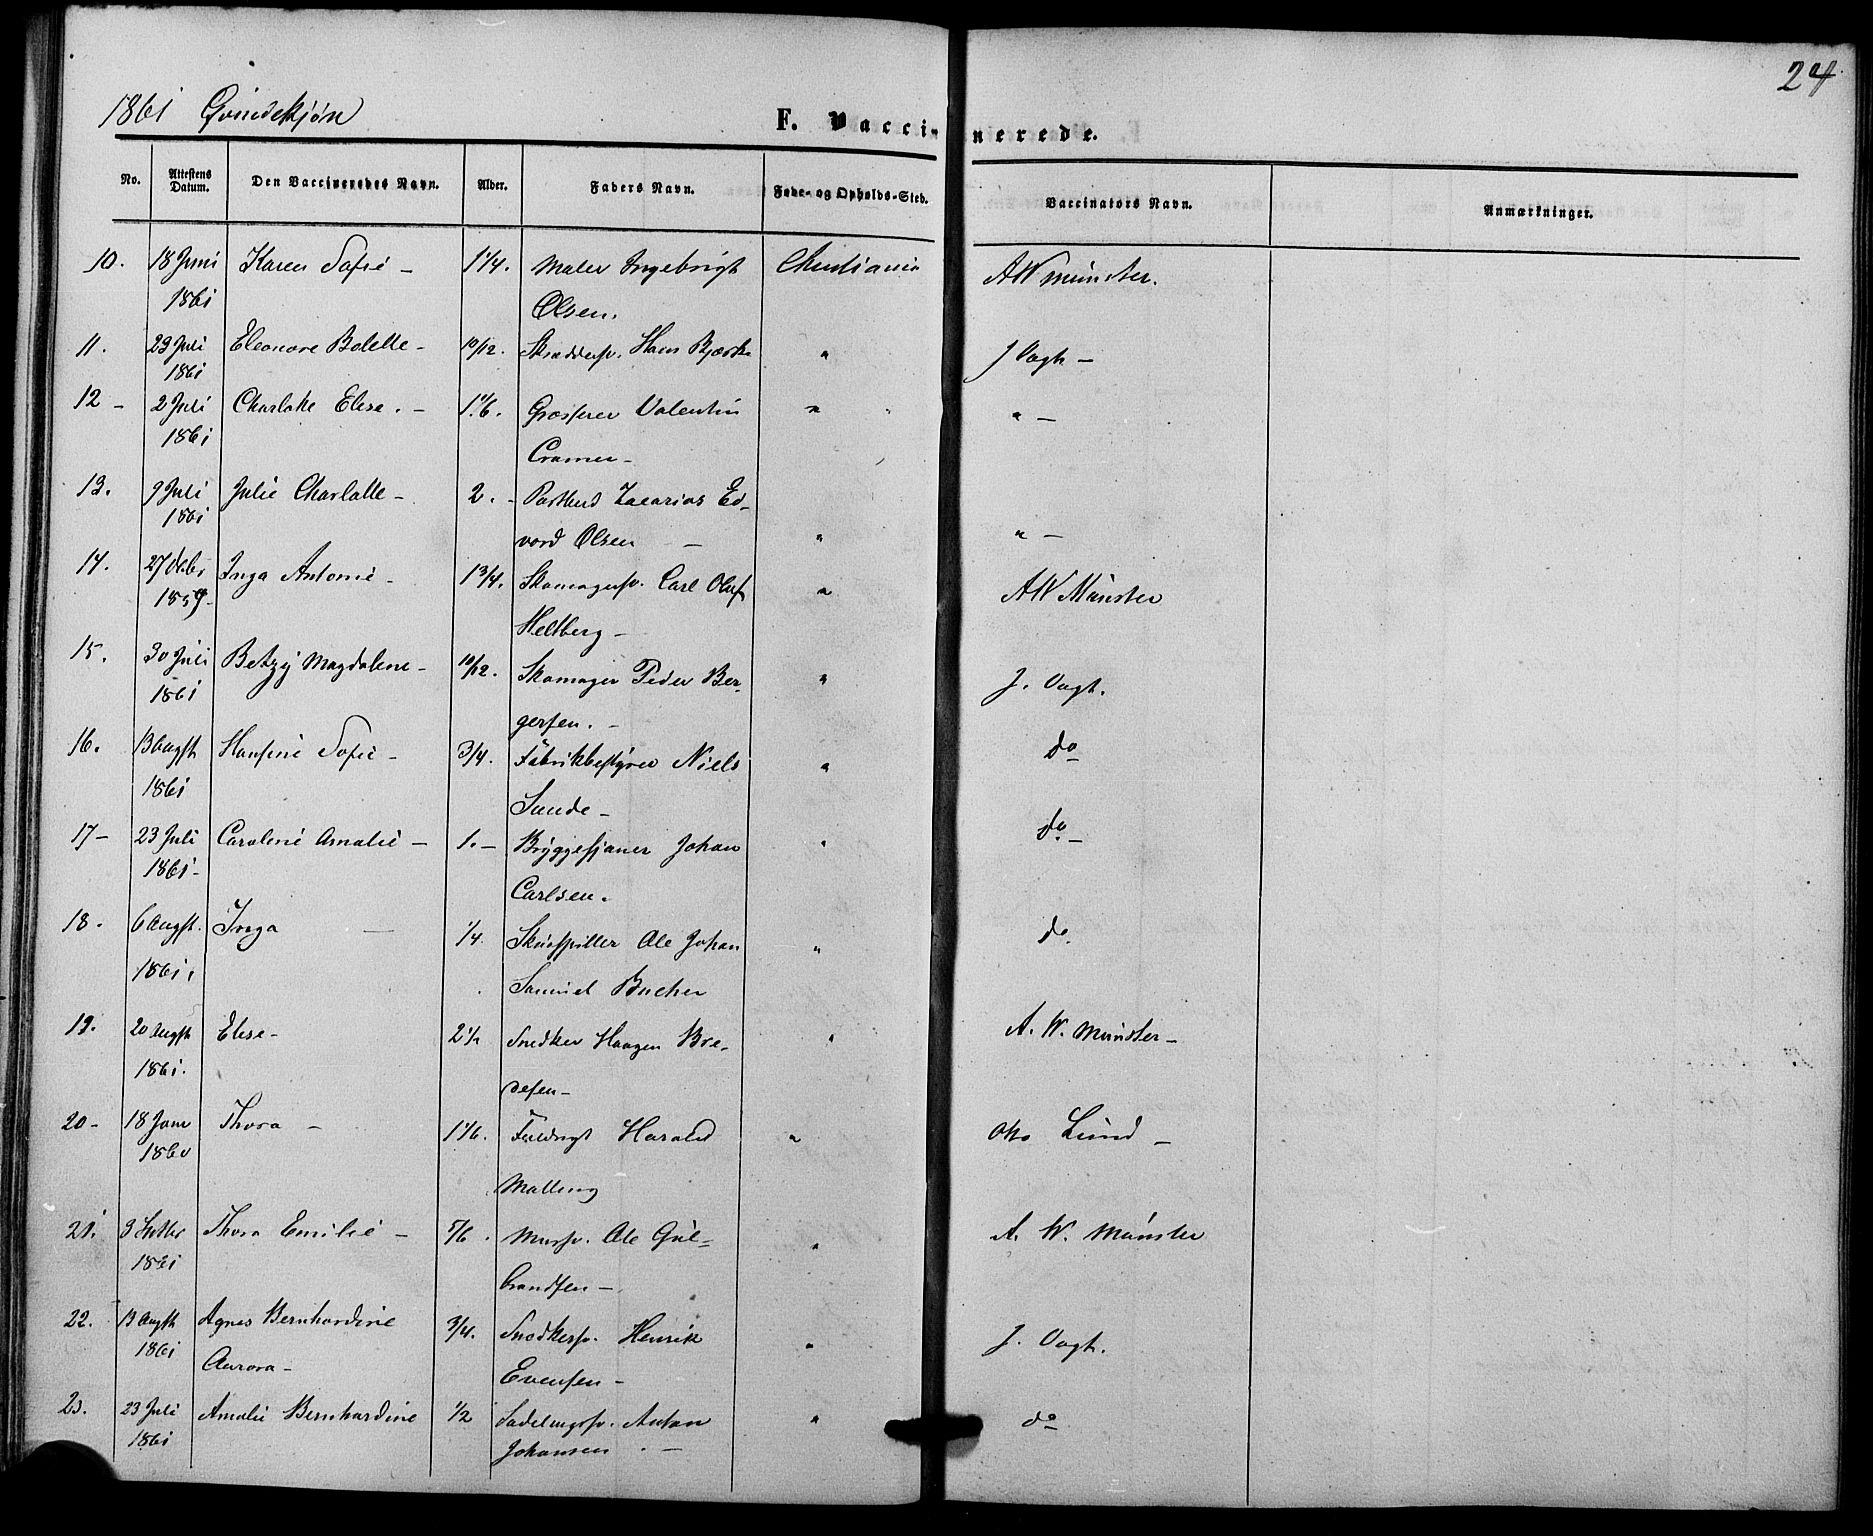 24
1861 Qvindekjøn
F. Vaccinerede.
No. Attestens Datum. Den Vaccineredes Navn. Alder. Faders Navn. Føde- og Opholds-Sted. Vaccinators Navn. Anmærkninger.
10. 18 Juni Karen Sofie - 1 1/4. Maler Ingebrigt Christiania AW Münster.
1861 Olsen.
11. 23 Juli Eleonore Bolette - 10/12. Skræddersv. Hans Bjerke " J Vogt -
1861
12 - 2 Juli Charlotte Elise. - 1 1/6. Grosserer Valentin " " -
1861 Cramer -
13. 9 Juli Julie Charlotte - 2. - Postbud Zacarias Ed-
1861 vard Olsen - " " -
14. 27 Inga Antonie - 1 3/4. Skomagersv. Carl Oluf " AW Münster
1859 Heltberg -
15. 30 Juli Betzy Magdalene - 10/12. Skomager Peder Ber- " J. Vogt.
1861 gersen. -
16. 13 Augst Hansine Sofie - 3/4. Fabrikbestyrer Niels " do
1861 Sande -
17 - 23 Juli Caroline Amalie - 1. - Bryggesjauer Johan " do -
1861 - Carlsen.
18. 6 Augst. Inga - 1/4. Skuespiller Ole Johan " do.
1861. Samuel Bucher
19. 20 Augst Elise - 2 1/2 Snedker Haagen Bre- " A. W. Münster -
1861. desen -
20 - 18 Thora - 1 1/6. Harald " Otto Lund -
1860 Malling
21. 3 Thora Emilie - 5/6. Mursv. Ole Gul- " A. W. Münster
1861 brandsen -
22. 13 Augst Agnes Bernhardine 3/4. Snedkersv. Henrik " J. Vogt.
1861 Aurora - Evensen -
23. 23 Juli Amalie Bernhardine 1/2 Sadelmagersv. Anton " do
1861 Johansen. -